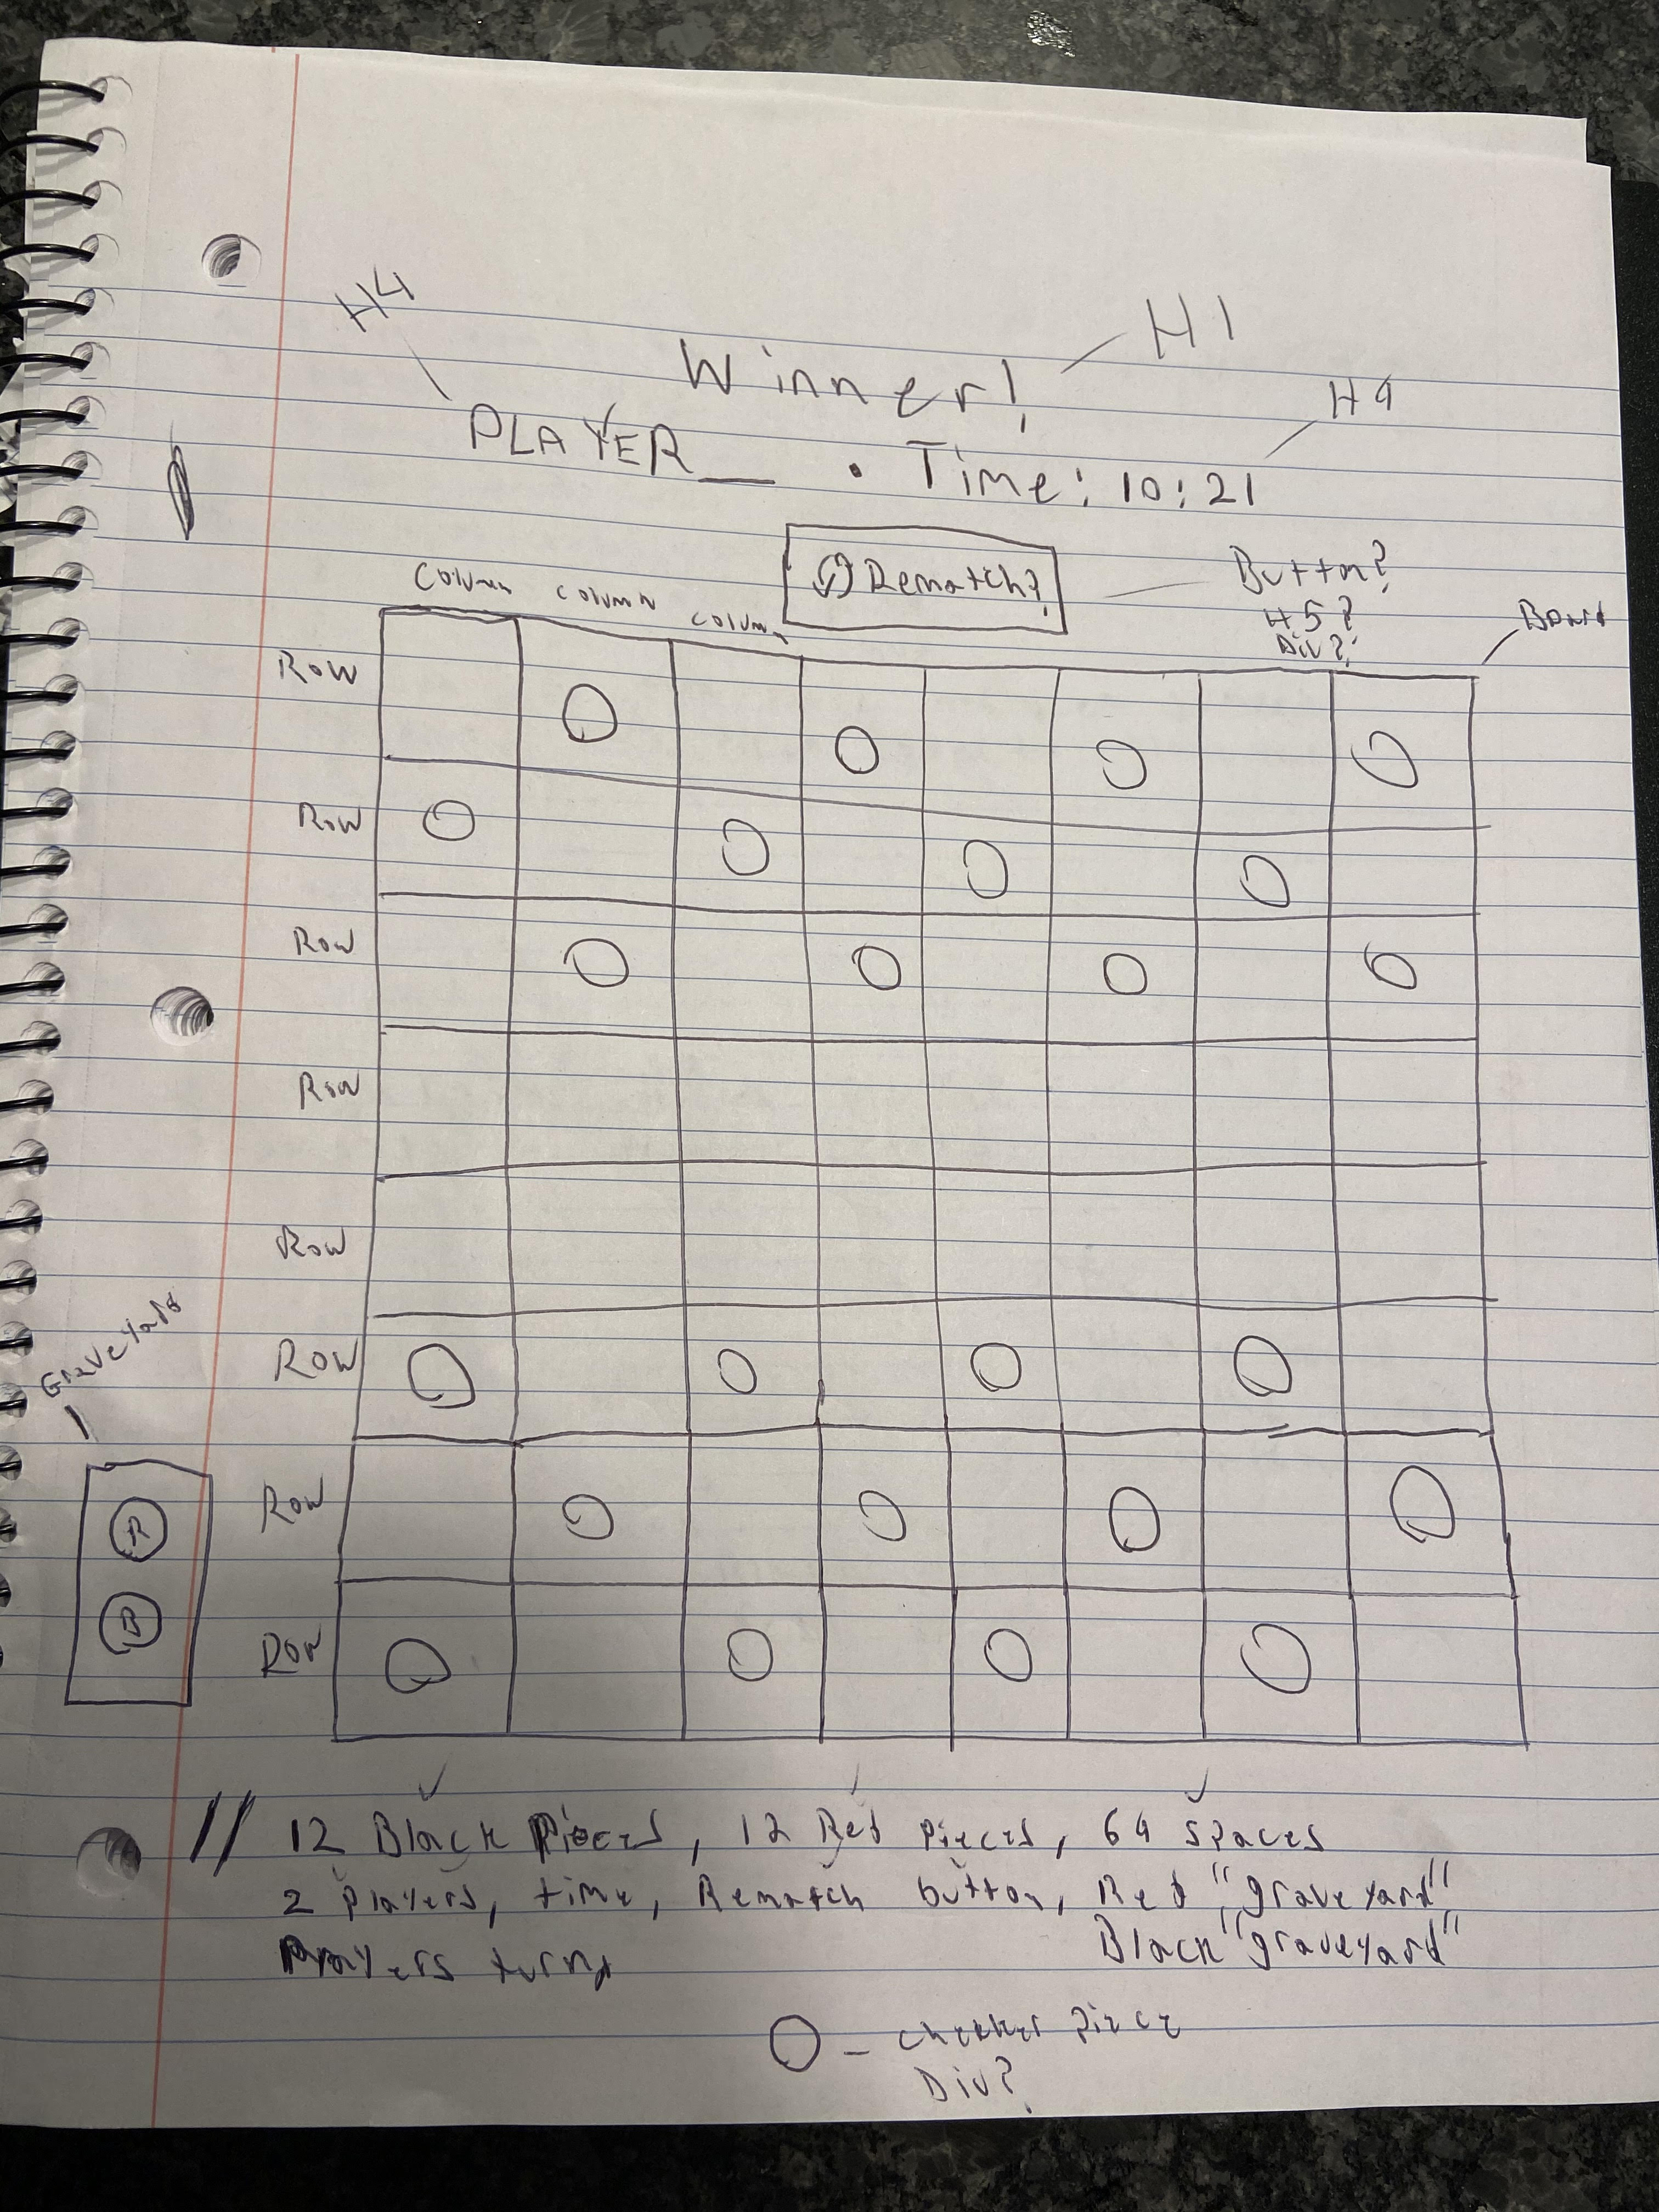 H4
H1
Winner!
H4
PLAYER__ • Time: 10:21
Rematch?
Button?
H5?
Div?
Board
Column Column Column
Row
Row
Row
Row
Row
Row
Row
Row
Graveyard
R
B
// 12 Black Pieces, 12 Red pieces, 64 spaces
2 players, time, Rematch button, Red "graveyard"
Black "graveyard"
Players turns
O - checker piece
Div?